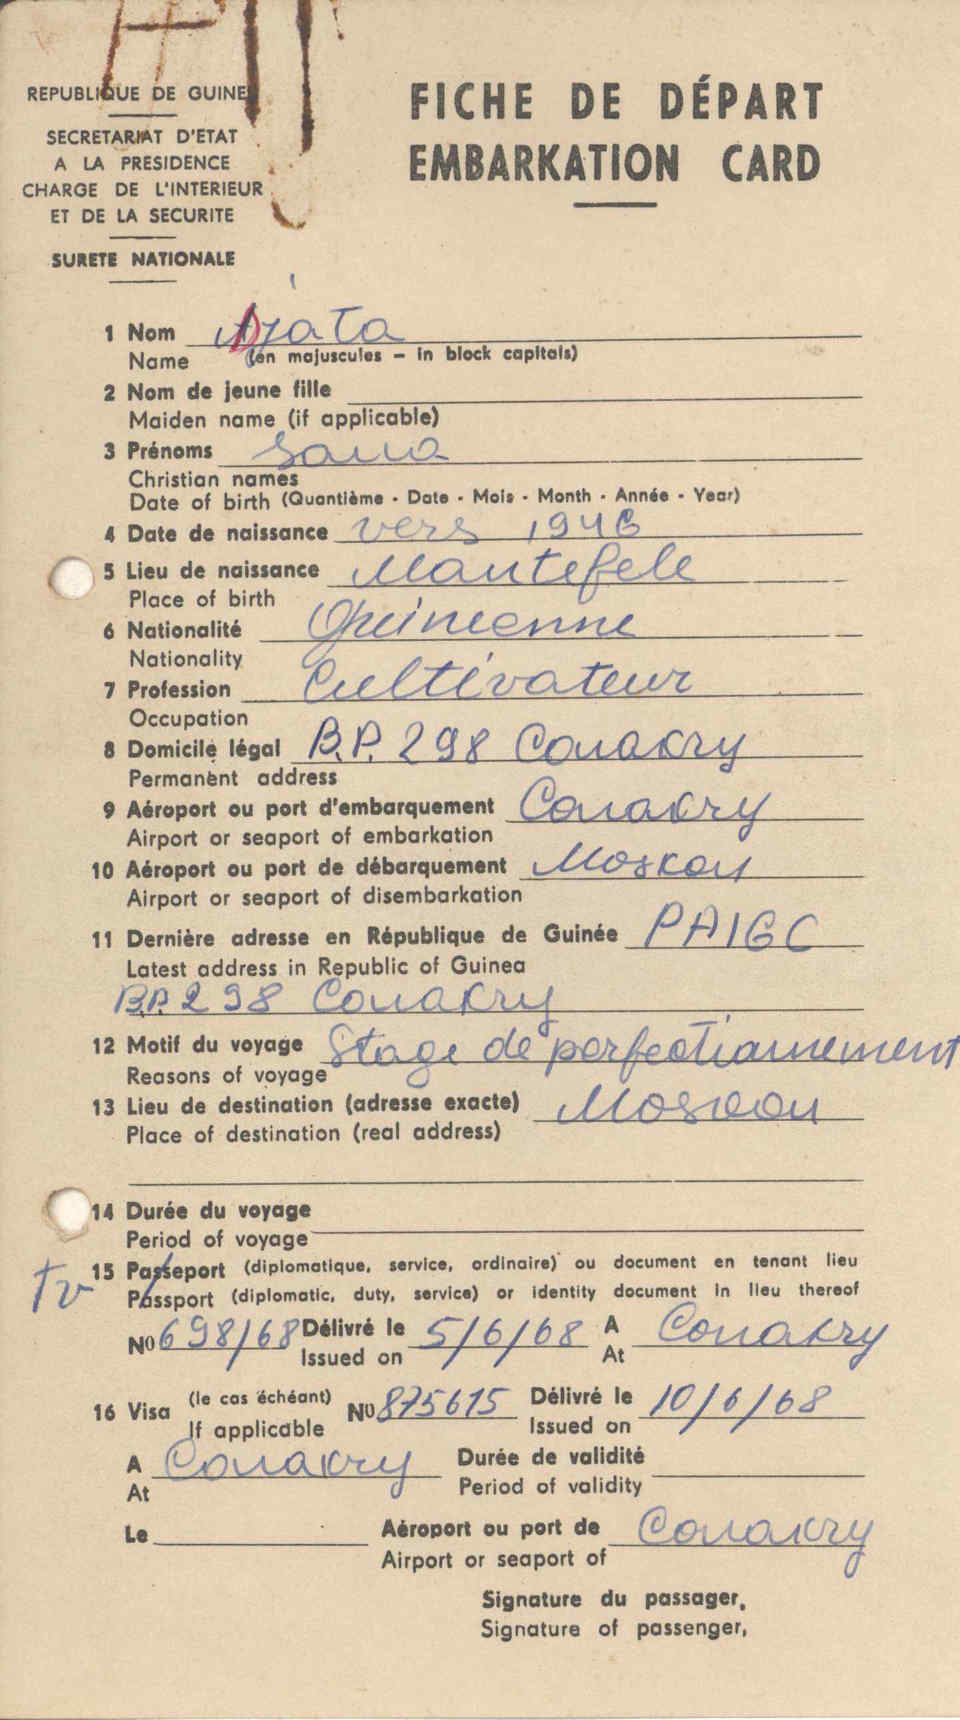 REPUBLIQUE DE GUINEE
SECRETARIAT D'ETAT
A LA PRESIDENCE
CHARGE DE L'INTERIEUR
ET DE LA SECURITE
SURETE NATIONALE
FICHE DE DÉPART
EMBARKATION CARD
1 Nom Djata
Name (en majuscules – in block capitals)
2 Nom de jeune fille
Maiden name (if applicable)
3 Prénoms Sana
Christian names
Date of birth (Quantième - Date - Mois - Month - Année - Year)
4 Date de naissance vers 1946
5 Lieu de naissance Mantefele
Place of birth
6 Nationalité Guineenne
Nationality
7 Profession Cultivateur
Occupation
8 Domicile légal B.P. 298 Conakry
Permanent address
9 Aéroport ou port d'embarquement Conakry
Airport or seaport of embarkation
10 Aéroport ou port de débarquement Moskou
Airport or seaport of disembarkation
11 Dernière adresse en République de Guinée PAIGC
Latest address in Republic of Guinea
B.P. 298 Conakry
12 Motif du voyage Stage de perfectionnement
Reasons of voyage
13 Lieu de destination (adresse exacte) Moscou
Place of destination (real address)
14 Durée du voyage
Period of voyage
15 Passeport (diplomatique, service, ordinaire) ou document en tenant lieu
Passport (diplomatic, duty, service) or identity document in lieu thereof
No 698/68 Délivré le 5/6/68 A Conakry
Issued on At
16 Visa (le cas échéant) No 875615 Délivré le 10/6/68
If applicable Issued on
A Conakry Durée de validité
At Period of validity
Le Aéroport ou port de Conakry
Airport or seaport of
Signature du passager,
Signature of passenger,